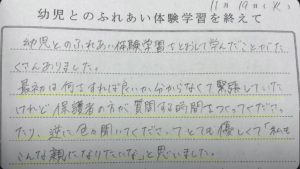 11月19日(火)
幼児とのふれあい体験学習を終えて
幼児とのふれあい体験学習をとおして学んだことがた
くさんありました。
最初は何をすれば良いか分からなくて緊張していた
けれど保護者の方が質問する時間をつくってくださっ
たり、逆に色々聞いてくださって とても優しくて「私も
こんな親になりたいな」と思いました。